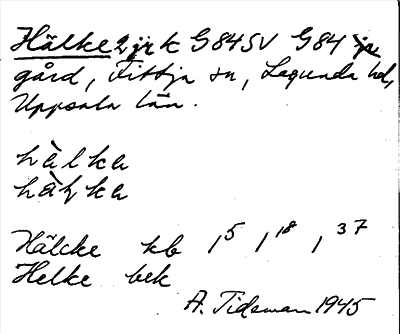 Hälke 2 jrk G 84 SV G 84
gård, Fittja sn, Lagunda hd,
Uppsala län.
hàlka
Hälcke kb 1⁵, 1¹⁸, 1³⁷
Helke bek
A. Tideman 1945